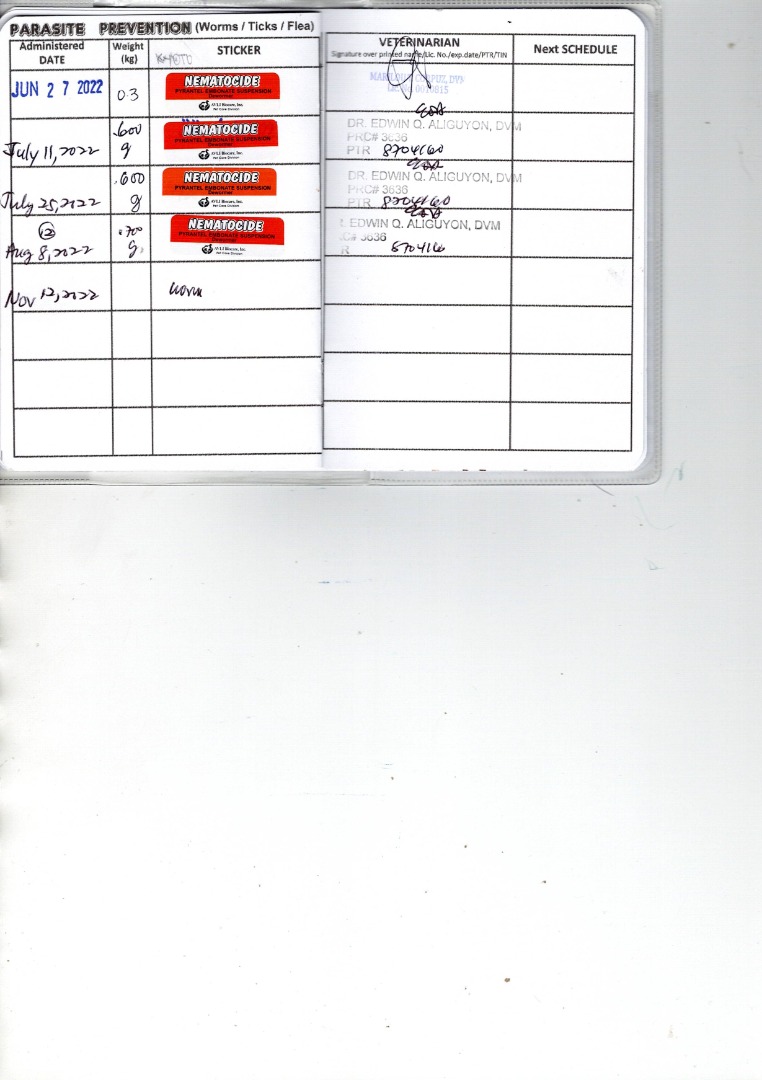 PARASITE PREVENTION (Worms / Ticks / Flea)
Administered DATE
Weight (kg)
STICKER
VETERINARIAN
Signature over printed name/Lic. No./exp.date/PTR/TIN
Next SCHEDULE
JUN 27 2022
0.3
NEMATOCIDE
PYRANTEL EMBONATE SUSPENSION
Dewormer
AVLI Biocare, Inc.
Pet Care Division
July 11, 2022
.600 g
NEMATOCIDE
PYRANTEL EMBONATE SUSPENSION
AVLI Biocare, Inc.
Pet Care Division
DR. EDWIN Q. ALIGUYON, DVM
PRC# 3636
PTR 8704160
July 25, 2022
.600 g
NEMATOCIDE
PYRANTEL EMBONATE SUSPENSION
Dewormer
AVLI Biocare, Inc.
Pet Care Division
DR. EDWIN Q. ALIGUYON, DVM
PRC# 3636
PTR 8704160
Aug 8, 2022
.700 g.
NEMATOCIDE
PYRANTEL EMBONATE SUSPENSION
Dewormer
AVLI Biocare, Inc.
Pet Care Division
EDWIN Q. ALIGUYON, DVM
3636
R 870416
Nov 12, 2022